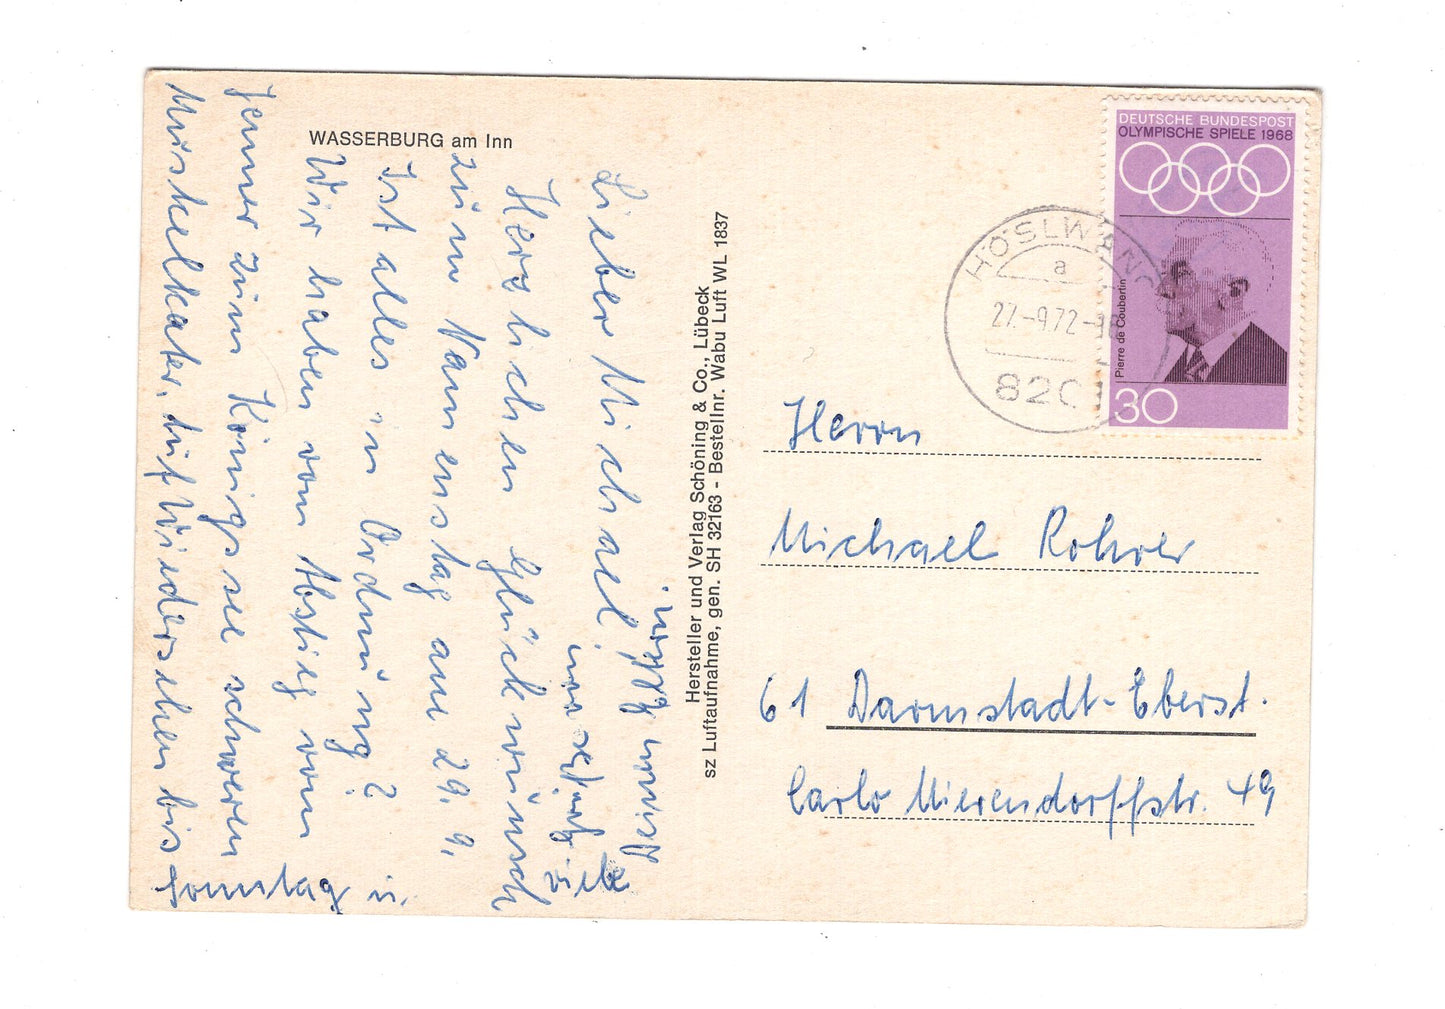 WASSERBURG am Inn
Lieber Michael!
Herzlichen Glückwunsch
zum Namenstag am 29. 9.
Ist alles in Ordnung?
Wir haben vom Abstieg vom
Jenner zum Königssee schweren
Muskelkater. Auf Wiedersehen bis
Sonntag u.
viele
Hersteller und Verlag Schöning & Co., Lübeck
sz Luftaufnahme, gen. SH 32163 - Bestellnr. Wabu Luft WL 1837
DEUTSCHE BUNDESPOST
OLYMPISCHE SPIELE 1968
Pierre de Coubertin
30
HÖSLWANG
a
27.-9.72-18
8201
Herrn
Michael Rohrer
61 Darmstadt-Eberst.
Carlo Mierendorffstr. 49